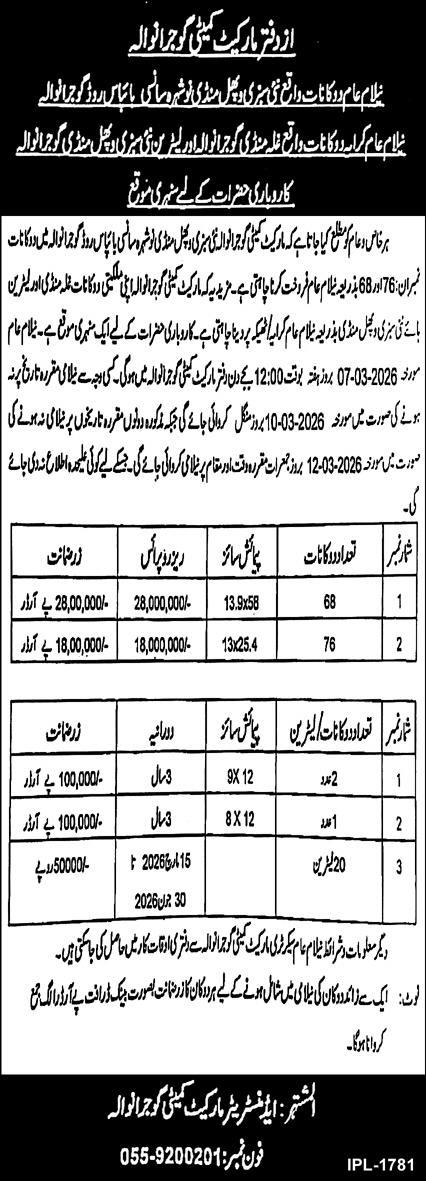 از دفتر مارکیٹ کمیٹی گوجرانوالہ
نیلام عام دوکانات واقع نئی سبزی و پھل منڈی نوشہرہ سانسی بائپاس روڈ گوجرانوالہ
نیلام عام کرایہ دوکانات واقع غلہ منڈی گوجرانوالہ اور لیٹرین نئی سبزی و پھل منڈی گوجرانوالہ
کاروباری حضرات کے لیے سنہری موقع
ہر خاص و عام کو مطلع کیا جاتا ہے کہ مارکیٹ کمیٹی گوجرانوالہ نئی سبزی و پھل منڈی نوشہرہ سانسی بائپاس روڈ گوجرانوالہ میں دوکانات
نمبران:76 اور 68 بذریعہ نیلام عام فروخت کرنا چاہتی ہے۔ مزید یہ کہ مارکیٹ کمیٹی گوجرانوالہ اپنی ملکیتی دوکانات غلہ منڈی اور لیٹرین
ہائے نئی سبزی و پھل منڈی بذریعہ نیلام عام کرایہ/ٹھیکہ پر دینا چاہتی ہے۔ کاروباری حضرات کے لیے ایک سنہری موقع ہے۔ نیلام عام
مورخہ 07-03-2026 بروز ہفتہ بوقت 12:00 بجے دن دفتر مارکیٹ کمیٹی گوجرانوالہ میں ہوگی۔ کسی وجہ سے نیلامی مقررہ تاریخ پر نہ
ہونے کی صورت میں مورخہ 10-03-2026 بروز منگل کروائی جائے گی جبکہ مذکورہ دونوں مقررہ تاریخوں پر نیلامی نہ ہونے کی
صورت میں مورخہ 12-03-2026 بروز جمعرات مقررہ وقت اور مقام پر نیلامی کروائی جائے گی۔ جسکے لیے کوئی علیحدہ اطلاع نہ دی جائے
گی۔
شمار نمبر تعداد دوکانات پیمائش سائز ریزرو پرائس زر ضمانت
1 68 13.9x58 28,000,000/- 28,00,000/- پے آرڈر
2 76 13x25.4 18,000,000/- 18,00,000/- پے آرڈر
شمار نمبر تعداد دوکانات/لیٹرین پیمائش سائز دورانیہ زر ضمانت
1 2 عدد 9X 12 3 سال 100,000/- پے آرڈر
2 1 عدد 8 X 12 3 سال 100,000/- پے آرڈر
3 20 لیٹرین 15 مارچ 2026 تا 50000/- روپے
30 جون 2026
دیگر معلومات و شرائط نیلام عام سیکرٹری مارکیٹ کمیٹی گوجرانوالہ سے دفتری اوقات کار میں حاصل کی جاسکتی ہیں۔
نوٹ: ایک سے زائد دوکان کی نیلامی میں شامل ہونے کے لیے ہر دوکان کا زر ضمانت بصورت بینک ڈرافٹ پے آرڈر الگ جمع
کروانا ہوگا۔
المشتہر: ایڈمنسٹریٹر مارکیٹ کمیٹی گوجرانوالہ
فون نمبر: 055-9200201
IPL-1781